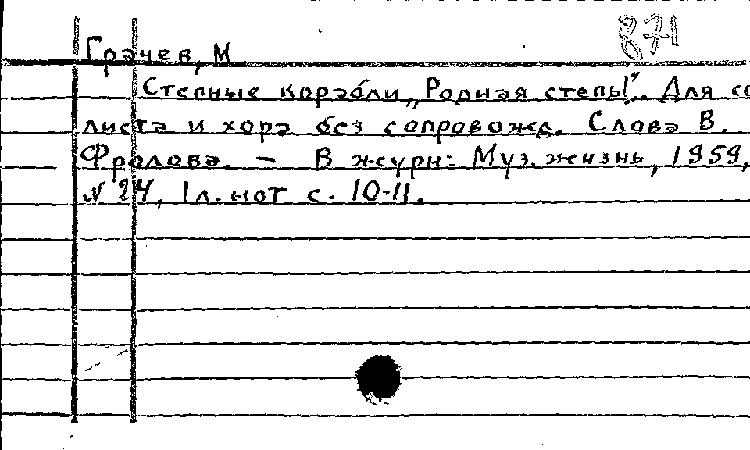 871
Грачев, М
Степные корабли „Родная степь!". Для со
листа и хора без сопровожд. Слова В.
Фролова. — В журн: Муз. жизнь, 1959,
№ 24, 1л. нот с. 10-11.